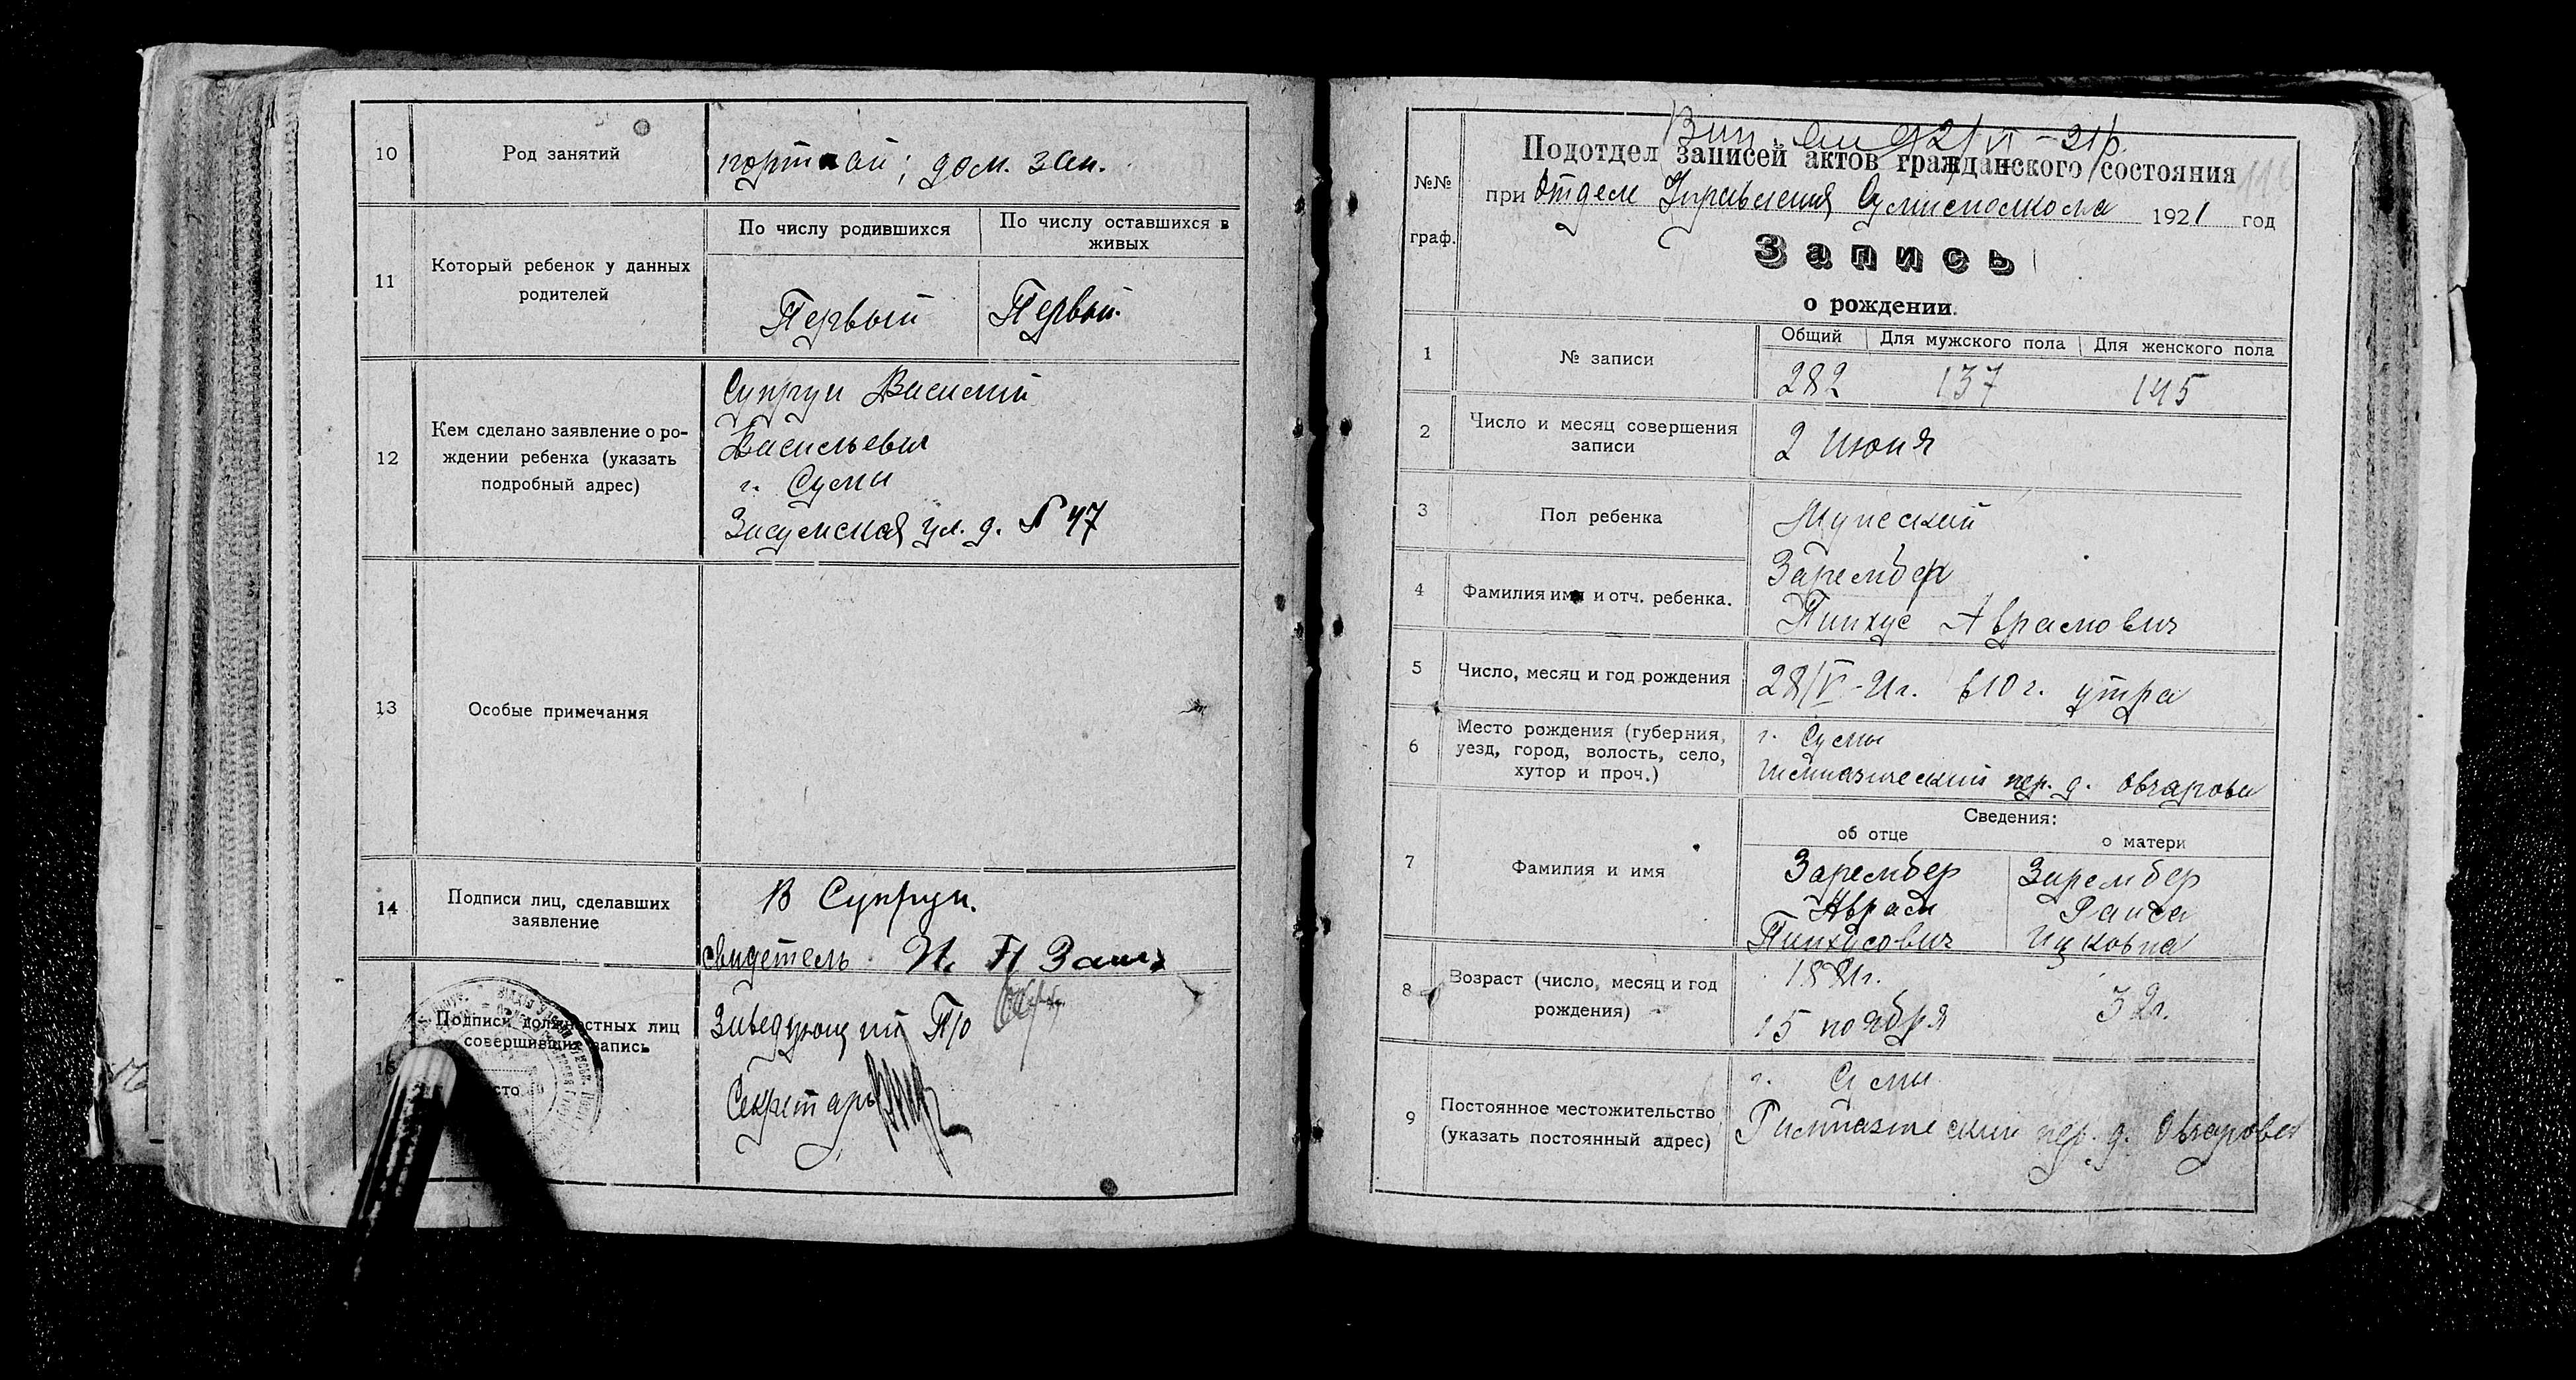 10
Род занятий
портной; дом. зан.
11
Который ребенок у данных
родителей
По числу родившихся
По числу оставшихся в
живых
Первый
Первый.
12
Кем сделано заявление о ро-
ждении ребенка (указать
подробный адрес)
Супрун Василий
Васильевич
г. Сумы
Засумская ул. д. № 47
13
Особые примечания
14
Подписи лиц, сделавших
заявление
В Супрун.
свидетель И. Н
15
Подписи должностных лиц
совершивших запись
Заведующий П/о
Секретарь
Подотдел записей актов гражданского состояния
при Отделе Управления Сумисполкома 1921 год
№№
граф.
Запись
о рождении.
1
№ записи
Общий
Для мужского пола
Для женского пола
282
137
145
2
Число и месяц совершения
записи
2 июня
3
Пол ребенка
Мужеский
4
Фамилия имя и отч. ребенка.
Зарембер
Пинхус Аврамович
5
Число, месяц и год рождения
28/V-21г. в 10 г. утра
6
Место рождения (губерния,
уезд, город, волость, село,
хутор и проч.)
г. Сумы
Гимназический пер. д. Овчарова
Сведения:
об отце
о матери
7
Фамилия и имя
Зарембер
Аврам
Пинхусович
Зарембер
Раиса
Ицковна
8
Возраст (число, месяц и год
рождения)
15 ноября
32г.
9
Постоянное местожительство
(указать постоянный адрес)
г. Сумы
Гимназический пер. д. Овчарова